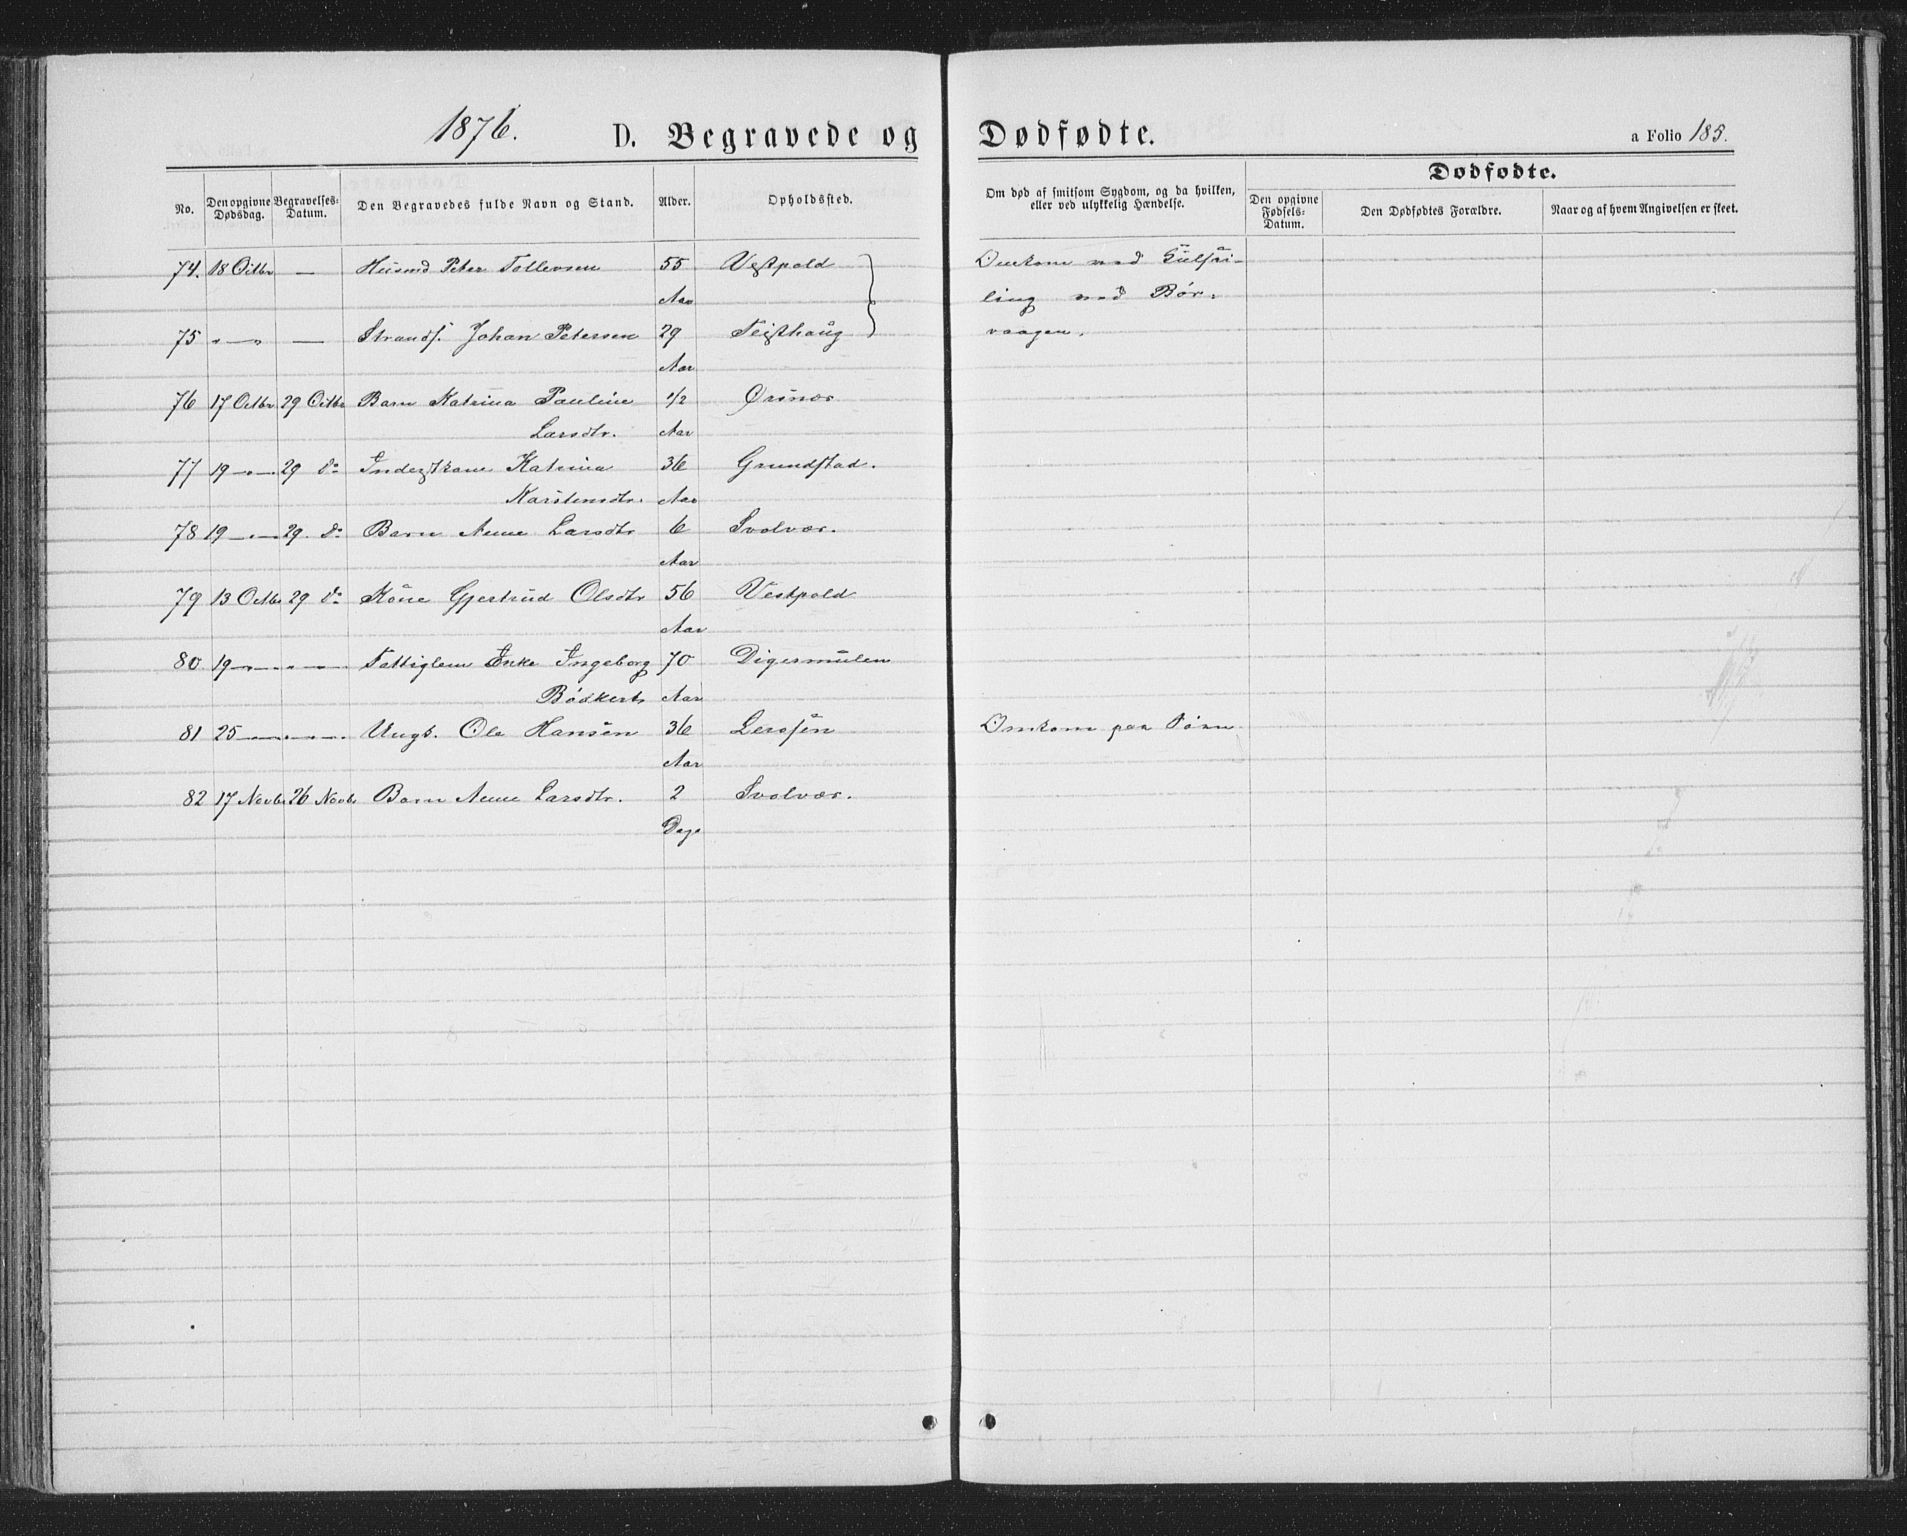 1876. D. Begravede og Dødfødte. a Folio 185.
No. Den opgivne Dødsdag. Begravelses-Datum. Den Begravedes fulde Navn og Stand. Alder. Opholdssted. Om død af smitsom Sygdom, og da hvilken, eller ved ulykkelig Hændelse. Dødfødte. Den opgivne Fødsels-Datum. Den Dødfødtes Forældre. Naar og af hvem Angivelsen er skeet.
74. 18 Octbr — Husmd Peter Tollevsen 55 Vestpold Omkom ved Kulsei-
Aar ling ved Bør-
75 " — " — Strands. Johan Petersen 29 Teisthaug vaagen.
Aar
76 17 Octbr 29 Octbr Barn Katrina Pauline 1/2 Ørsnæs
Larsdtr. Aar
77 19 — " — 29 do Inderstkone Katrina 36 Grundstad.
Karstensdtr. Aar
78 19 — " — 29. do Barn Anne Larsdtr 6 Svolvær.
Aar
79 13 Octbr 29 do Kone Gjertrud Olsdtr 56 Vestpold
Aar
80 19 — " — " — " — Fattiglem Enke Ingeborg 70 Digermulen
Bödkert Aar
81 25 — " — " — " — Ungk. Ole Hansen 36 Omkom paa Søen
Aar
82 17 Novbr 26 Novbr Barn Anne Larsdtr. 2 Svolvær.
Dage